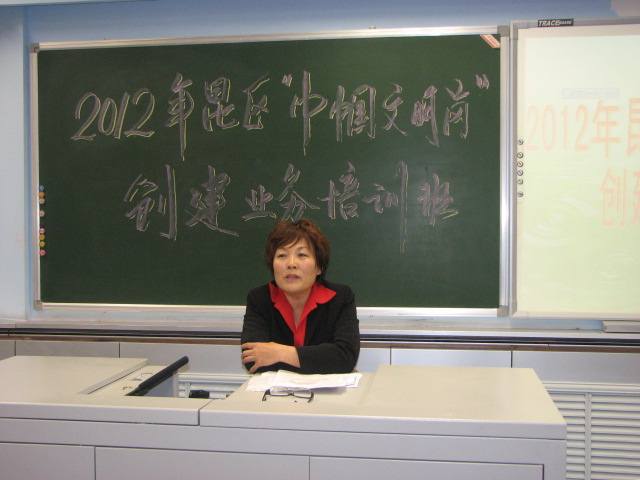 2012年昆区"巾帼文明岗"
创建业务培训班
TRACE
2012年昆
创建